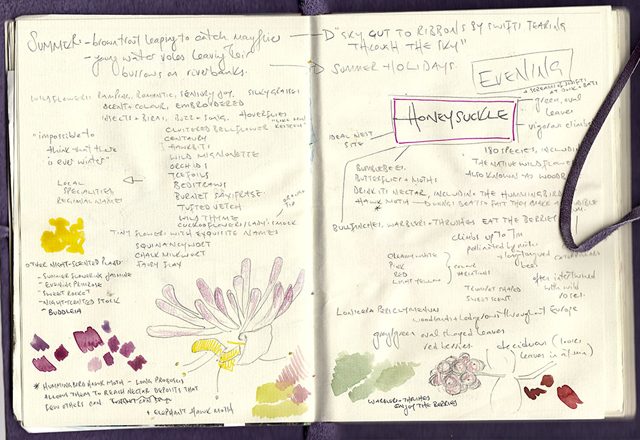 SUMMER - brown trout leaping to catch mayflies
- young water voles leaving their
burrows on riverbanks.
WILDFLOWERS: RAMPANT, ROMANTIC, SENSORY JOY, SILKY GRASSES
SCENT + COLOUR, EMBROIDERED
INSECTS + BIRDS, BUZZ + SONG, HOVERFLIES
"impossible to
think that there
is ever winter"
CLUSTERED BELLFLOWER
CENTAURY
HAWKBITS
WILD MIGNONETTE
ORCHIDS
TREFOILS
BEDSTRAWS
BURNET SAXIFRAGE
TUFTED VETCH
WILD THYME
CUCKOOFLOWER/LADY'S SMOCK
ORANGE
TIP
LOCAL
SPECIALITIES
REGIONAL NAMES
TINY FLOWERS WITH EXQUISITE NAMES
SQUINANCYWORT
CHALK MILKWORT
FAIRY FLAX
OTHER NIGHT-SCENTED PLANTS
- SUMMER FLOWERING JASMINE
- EVENING PRIMROSE
- SWEET ROCKET
- NIGHT-SCENTED STOCK
- BUDDLEIA
* HUMMINGBIRD HAWK MOTH - LONG PROBOSCIS
ALLOWS THEM TO REACH NECTAR DEPOSITS THAT
FEW OTHERS CAN
+ ELEPHANT HAWK MOTH
"SKY CUT TO RIBBONS BY SWIFTS TEARING
THROUGH THE SKY"
SUMMER HOLIDAYS
EVENING
+ SCREAMING SWIFTS
AT DUSK + BATS
HONEYSUCKLE
green, oval
leaves
vigorous climber
IDEAL NEST
SITE
180 SPECIES, INCLUDING
THE NATIVE WILDFLOWER
ALSO KNOWN AS WOODB
BUMBLEBEES
BUTTERFLIES + MOTHS
DRINK ITS NECTAR, INCLUDING THE HUMMINGBIRD
HAWK MOTH - WINGS BEAT SO FAST THEY MAKE AN AUDIBLE
*
BULLFINCHES, WARBLERS + THRUSHES EAT THE BERRIES
climbs up to 7m
pollinated by moths
+ long-tongued
bees
CREAMY WHITE
PINK
RED
LIGHT YELLOW
COLOUR
VARIATIONS
TRUMPET SHAPED
SWEET SCENT
often intertwined
with wild
roses.
LONICERA PERICLYMENUM
woodlands + hedgerows throughout Europe
grey/green oval shaped leaves
red berries
deciduous (loses
leaves in autumn)
WARBLERS + THRUSHES
ENJOY THE BERRIES